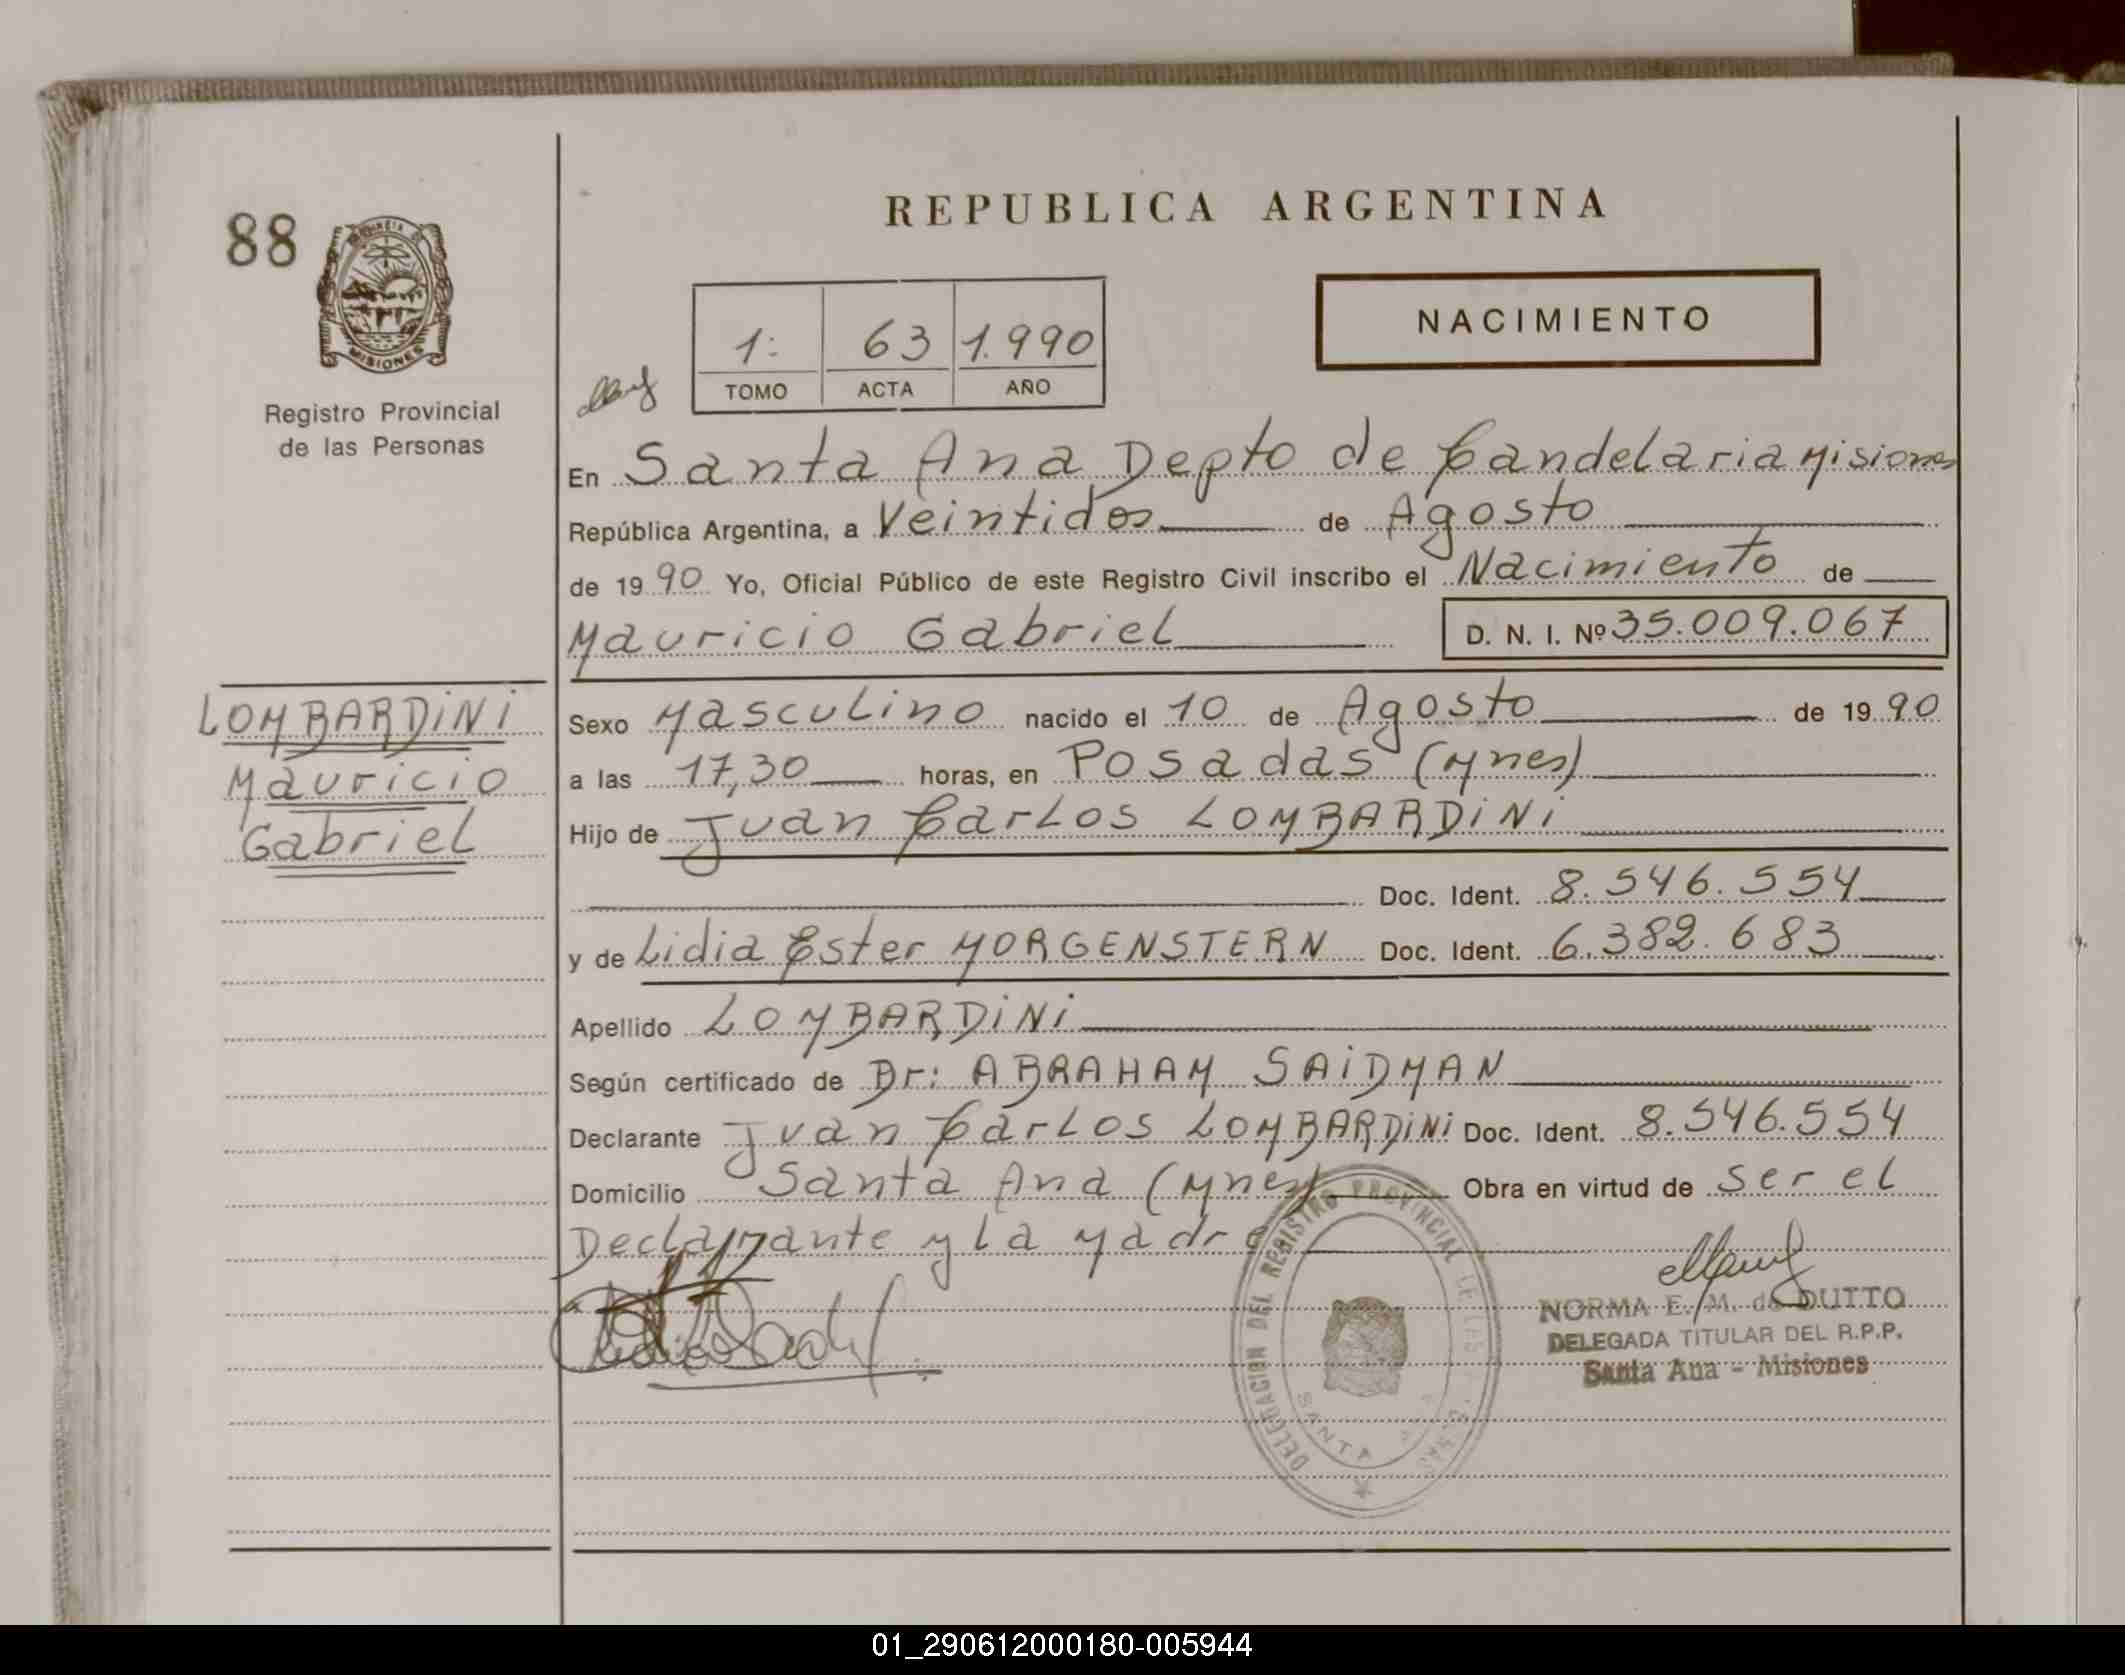 REPUBLICA ARGENTINA
88
MISIONES
Registro Provincial
de las Personas
1: 63 1.990
TOMO ACTA AÑO
NACIMIENTO
En Santa Ana Depto de Candelaria Misiones
República Argentina, a Veintidos de Agosto
de 1990 Yo, Oficial Público de este Registro Civil inscribo el Nacimiento de
Mauricio Gabriel D. N. I. Nº 35.009.067
LOMBARDiNi
Mauricio
Gabriel
Sexo Masculino nacido el 10 de Agosto de 1990
a las 17,30 horas, en Posadas (Mnes)
Hijo de Juan Carlos LOMBARDiNi
Doc. Ident. 8.546.554
y de Lidia Ester MORGENSTERN Doc. Ident. 6.382.683
Apellido LOMBARDiNi
Según certificado de Dr: ABRAHAM SAiDMAN
Declarante Juan Carlos LOMBARDiNi Doc. Ident. 8.546.554
Domicilio Santa Ana (Mnes) Obra en virtud de ser el
Declarante y la Madre
DELEGACION DEL REGISTRO PROVINCIAL DE LAS
SANTA
NORMA E. M. de DUTTO
DELEGADA TITULAR DEL R.P.P.
Santa Ana - Misiones
01_290612000180-005944